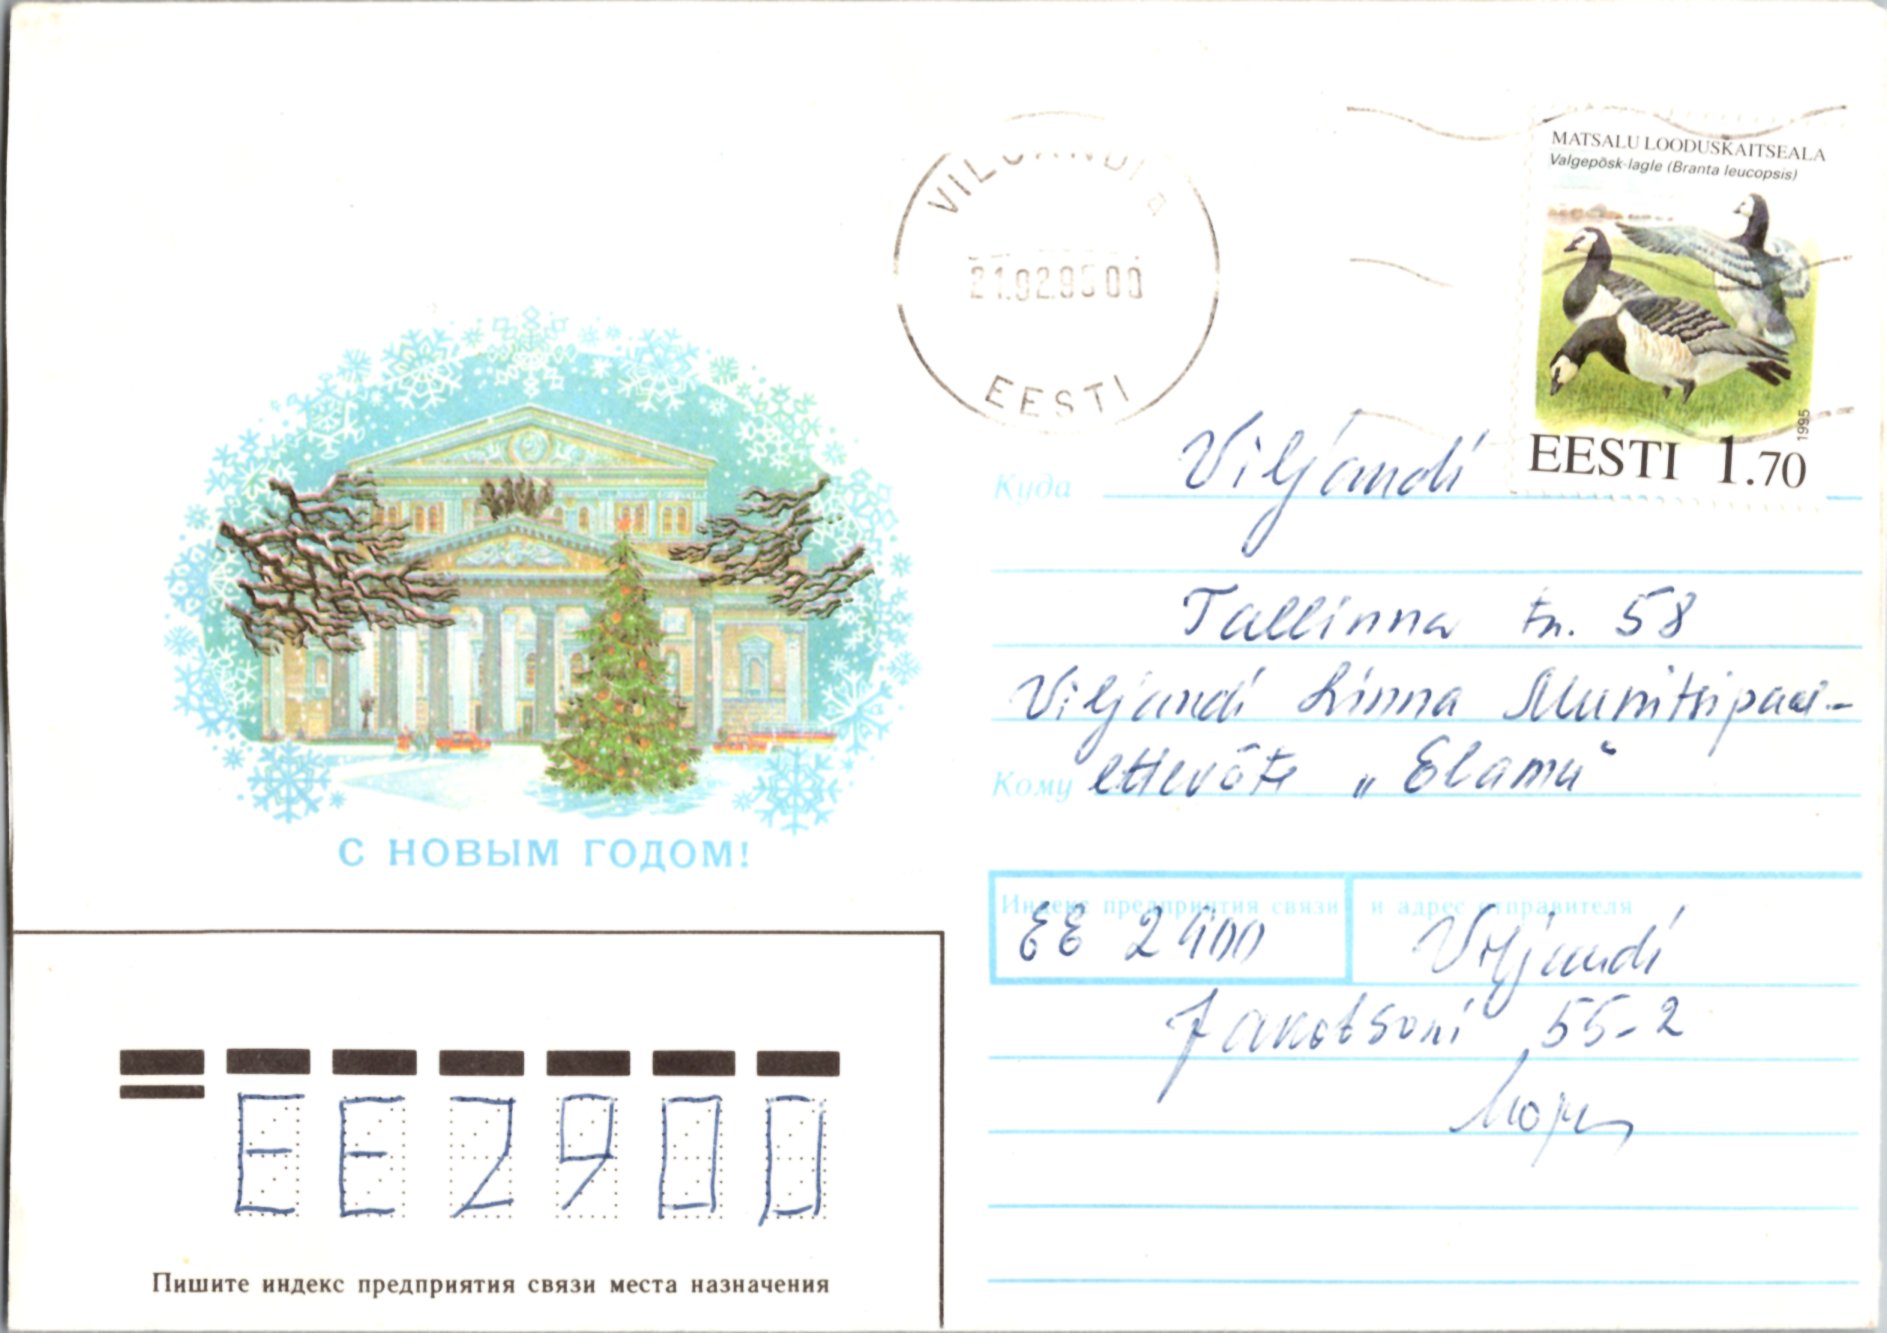 VILJANDI a
21.02.95 00
EESTI
MATSALU LOODUSKAITSEALA
Valgepõsk-lagle (Branta leucopsis)
1995
EESTI 1.70
С НОВЫМ ГОДОМ!
Куда Viljandi
Tallinna tn. 58
Viljandi Linna Munitsipaal-
Кому ettevõte „Elamu"
Индекс предприятия связи и адрес отправителя
EE 2900 Viljandi
Jakobsoni 55-2
EE2900
Пишите индекс предприятия связи места назначения